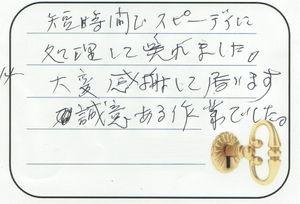 短時間でスピーディに
処理して呉れました。
大変感謝して居ります
誠意ある作業でした。